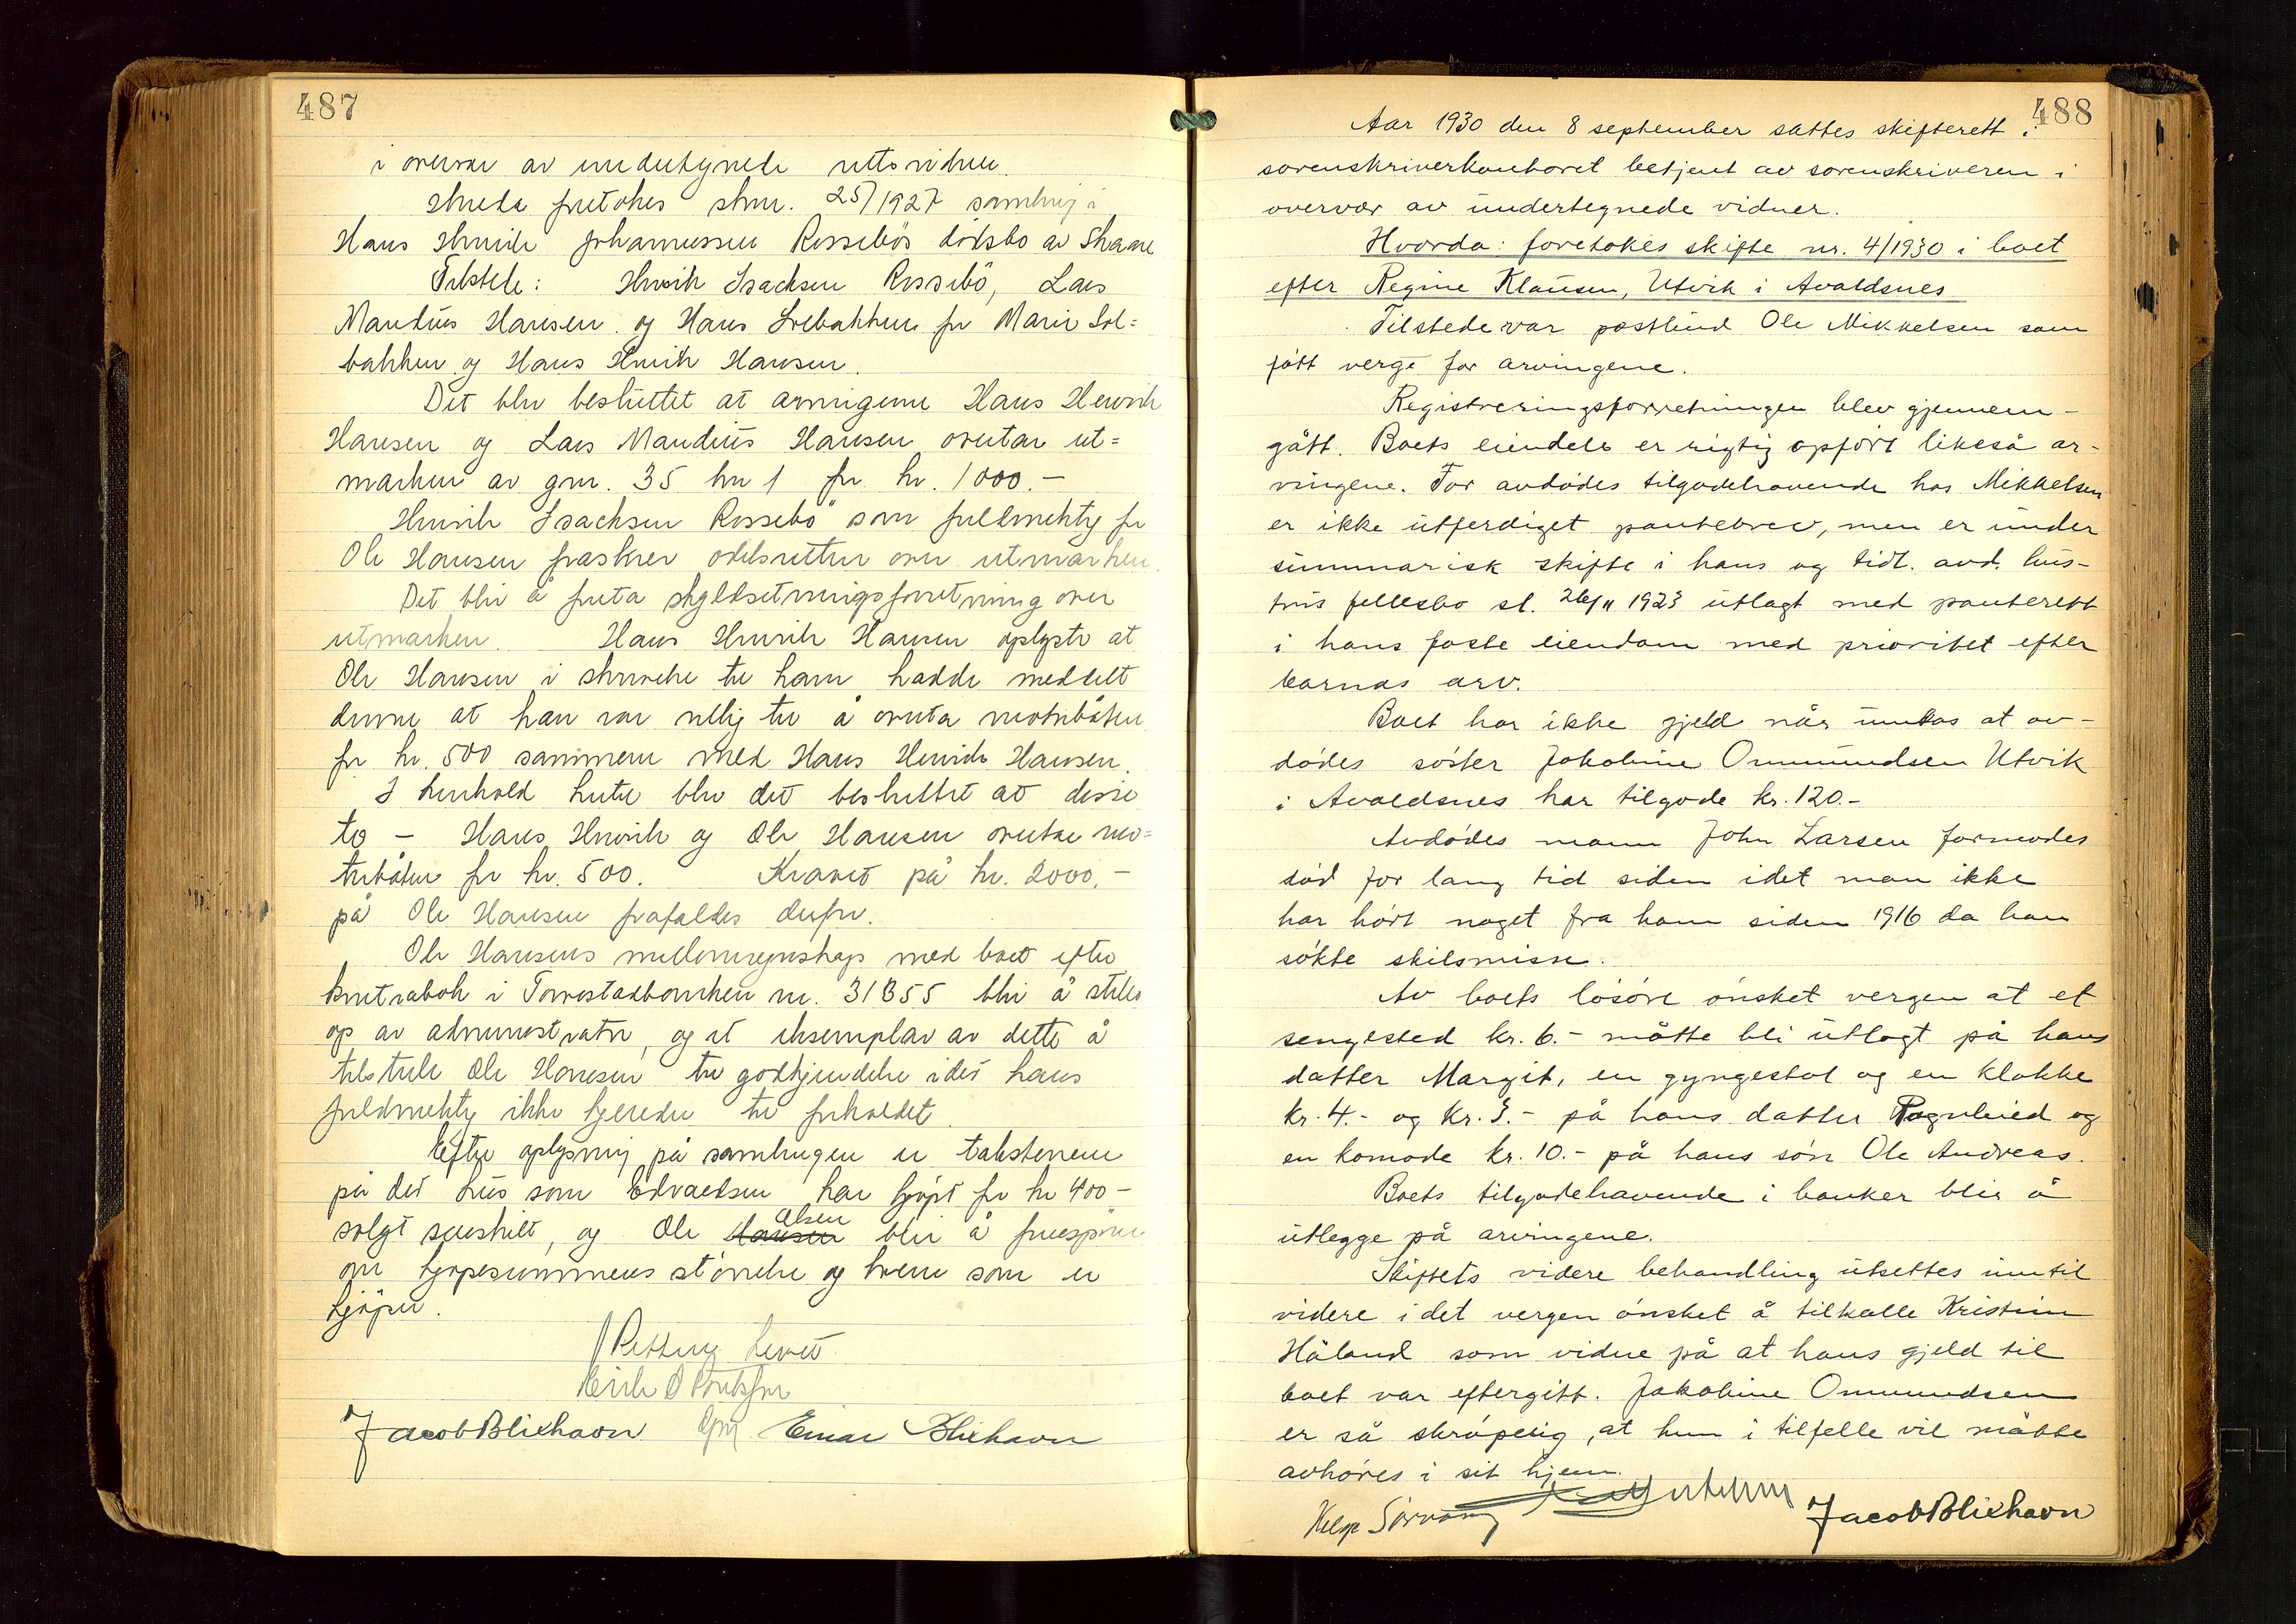 487
i overvær av undertegnede rettsvidner.
Hvorda foretokes sknr. 25/1927 samling i
Hans Henrik Johannessen Rossebös dödsbo av Skaare
Tilstede: Henrik Isachsen Rossebö, Lars
Mandius Hansen og Hans Solbakken for Marie Sol=
bakken og Hans Henrik Hansen.
Det blev besluttet at arvingerne Hans Henrik
Hansen og Lars Mandius Hansen overtar ut=
marken av gnr. 35 bnr 1 for kr. 1000.-
Henrik Isachsen Rossebö som fuldmektig for
Ole Hansen fraskrev odelsretten over utmarken.
Det blir å foreta skyldsetningsforretning over
utmarken. Hans Henrik Hansen oplyste at
Ole Hansen i skrivelse til ham hadde meddelt
denne at han var villig til å overta motorbåten
for kr. 500 sammen med Hans Henrik Hansen.
I henhold hertil blev det besluttet at disse
to - Hans Henrik og Ole Hansen overtar mo=
torbåten for kr. 500. Kravet på kr. 2000.-
på Ole Hansen frafaldes derfor.
Ole Hansens mellemregnskap med boet efter
kontrabok i Torvestadbanken nr. 31355 blir å stilles
op av administrator, og et eksemplar av dette å
tilstille Ole Hansen til godkjendelse idet hans
fuldmektig ikke kjender til forholdet.
Efter oplysning på samlingen er takstenene
på det hus som Edvardsen har kjöpt for kr 400-
solgt særskilt, og Ole Hansen Olsen blir å forespörre
om kjöpesummens störrelse og hvem som er
kjöper.
Retten hevet
Jacob Bliehavn Einar Bliehavn
488
Aar 1930 den 8 september sattes skifterett i
sorenskriverkontoret betjent av sorenskriveren i
overvær av undertegnede vidner.
Hvorda: foretokes skifte nr. 4/1930 i boet
efter Regine Klausen, Utvik i Avaldsnes
Tilstede var postbud Ole Mikkelsen som
fått verge for arvingene.
Registreringsforretningen blev gjennem-
gått. Boets eiendele er rigtig opført likeså ar-
vingene. For avdødes tilgodehavende hos Mikkelsen
er ikke utferdiget pantebrev, men er under
summarisk skifte i hans og tidl. avd. hus-
trus fellesbo sl. 26/11 1923 utlagt med panterett
i hans faste eiendom med prioritet efter
barnas arv.
Boet har ikke gjeld når untas at av-
dødes søster Jakobine Ommundsen Utvik
i Avaldsnes har tilgode kr. 120.-
Avdødes mann John Larsen formodes
død for lang tid siden idet man ikke
har hørt noget fra ham siden 1916 da han
søkte skilsmisse.
Av boets løsøre ønsket vergen at et
sengested kr. 6.- måtte bli utlagt på hans
datter Margit, en gyngestol og en klokke
kr. 4.- og kr. 3.- på hans datter Ragnhild og
en komode kr. 10.- på hans søn Ole Andreas.
Boets tilgodehavende i banker blir å
utlegge på arvingene.
Skiftets videre behandling utsettes inntil
videre idet vergen ønsket å tilkalle Kristian
Håland som vidne på at hans gjeld til
boet var eftergitt. Jakobine Ommundsen
er så skrøpelig, at hun i tilfelle vil måtte
avhøres i sit hjem.
Jacob Bliehavn